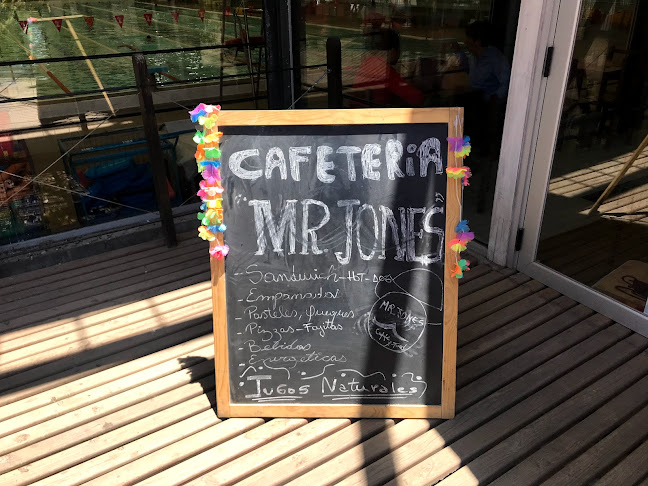 CAFETERIA
"MR. JONES"
- Sandwich - Hot-dog
- Empanadas
- Pasteles, Queques
- Pizzas - Fajitas
- Bebidas
- Energeticas
Jugos Naturales
MR. JONES